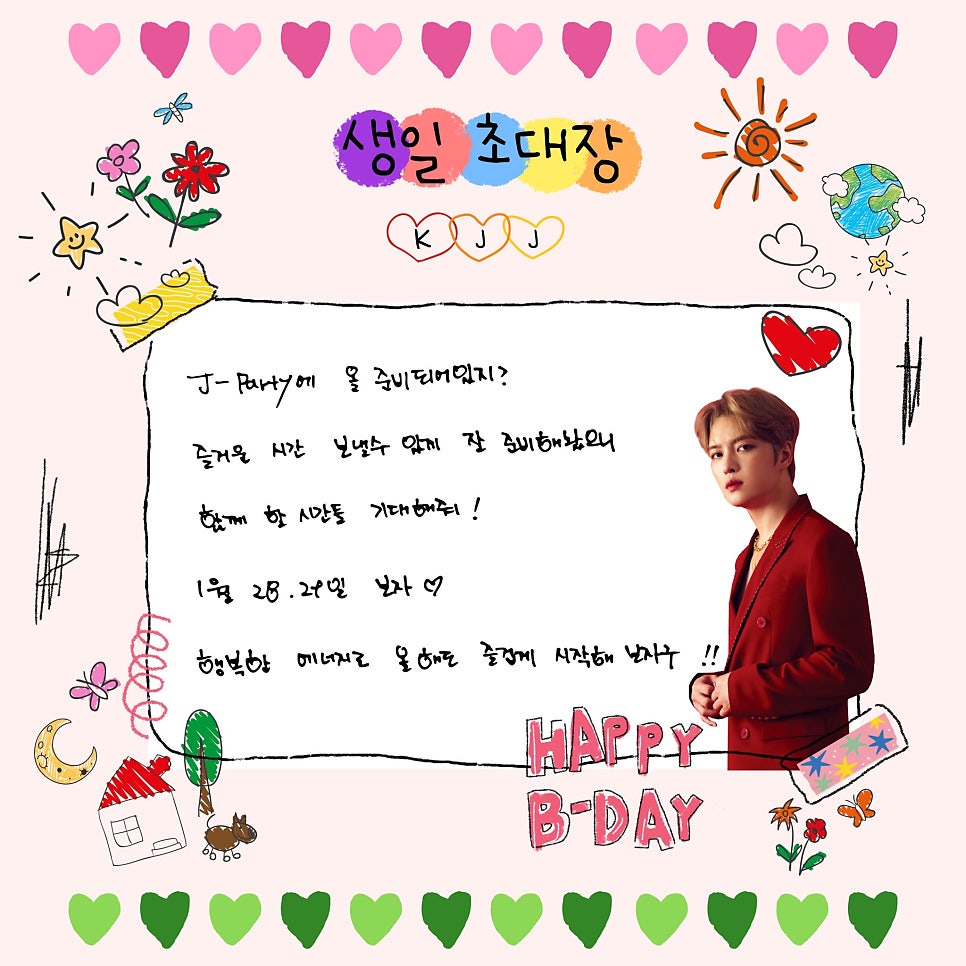 생일 초대장
K J J
J-Party에 올 준비되어있지?
즐거운 시간 보낼수 있게 잘 준비해놨으니
함께 할 시간들 기대해줘!
1월 28.29일 보자♡
행복한 에너지로 올해도 즐겁게 시작해 보자구!!
HAPPY
B-DAY